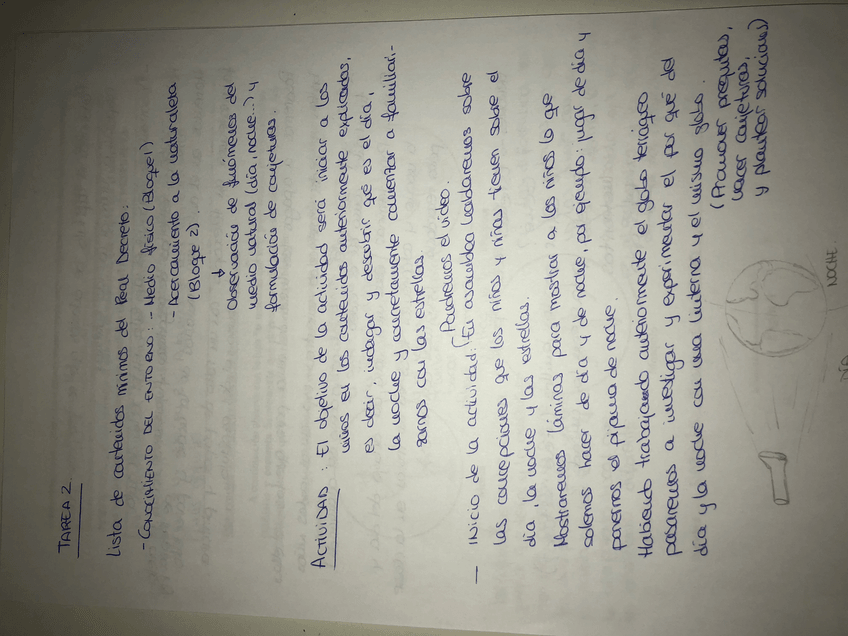 TAREA 2.
Lista de contenidos mínimos del Real Decreto:
- CONOCIMIENTO DEL ENTORNO: - Medio físico (Bloque 1)
- Acercamiento a la naturaleza
(Bloque 2).
↓
Observación de fenómenos del
medio natural (día, noche...) y
formulación de conjeturas.
ACTIVIDAD: El objetivo de la actividad será iniciar a los
niños en los contenidos anteriormente explicados,
es decir, indagar y descubrir qué es el día,
la noche y concretamente comenzar a familiari-
zarnos con las estrellas.
Pondremos el video.
— INICIO de la actividad: En asamblea hablaremos sobre
las concepciones que los niños y niñas tienen sobre el
día, la noche y las estrellas.
Mostraremos láminas para mostrar a los niños lo que
solemos hacer de día y de noche, por ejemplo: jugar de día y
ponernos el pijama de noche.
Habiendo trabajando anteriormente el globo terráqeo
pasaremos a investigar y experimentar el por qué del
día y la noche con una linterna y el mismo globo.
(Promover preguntas,
hacer conjeturas,
y plantear soluciones)
NOCHE